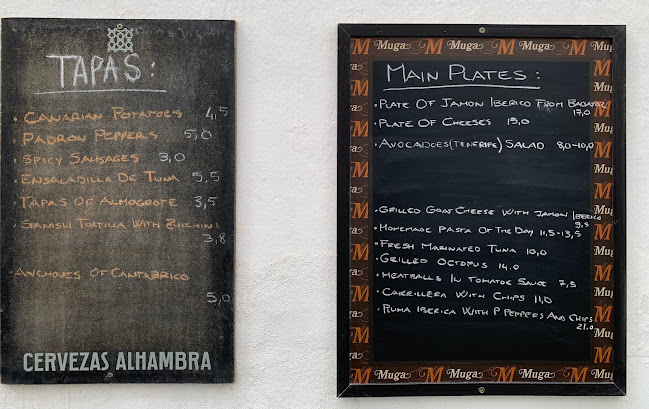 TAPAS:
• CANARIAN POTATOES 4,5
• PADRON PEPPERS 5,0
• SPICY SAUSAGES 3,0
• ENSALADILLA DE TUNA 5,5
• TAPAS OF ALMOGROTE 3,5
• SPANISH TORTILLA WITH ZUCCHINI
3,8
• ANCHOVES OF CANTABRICO
5,0
CERVEZAS ALHAMBRA
Muga M Muga M Muga M Muga
MAIN PLATES:
• PLATE OF JAMON IBERICO FROM
17,0
• PLATE OF CHEESES 15,0
• AVOCADOES (TENERIFE) SALAD 8,0-10,0
• GRILLED GOAT CHEESE WITH JAMON IBERICO
9,5
• HOMEMADE PASTA OF THE DAY 11,5-13,5
• FRESH MARINATED TUNA 10,0
• GRILLED OCTOPUS 14,0
• MEATBALLS IN TOMATOE SAUCE 7,5
• CARRILLERA WITH CHIPS 11,0
• PLUMA IBERICA WITH P. PEPPERS AND CHIPS
21,0
Muga M Muga M Muga M Muga